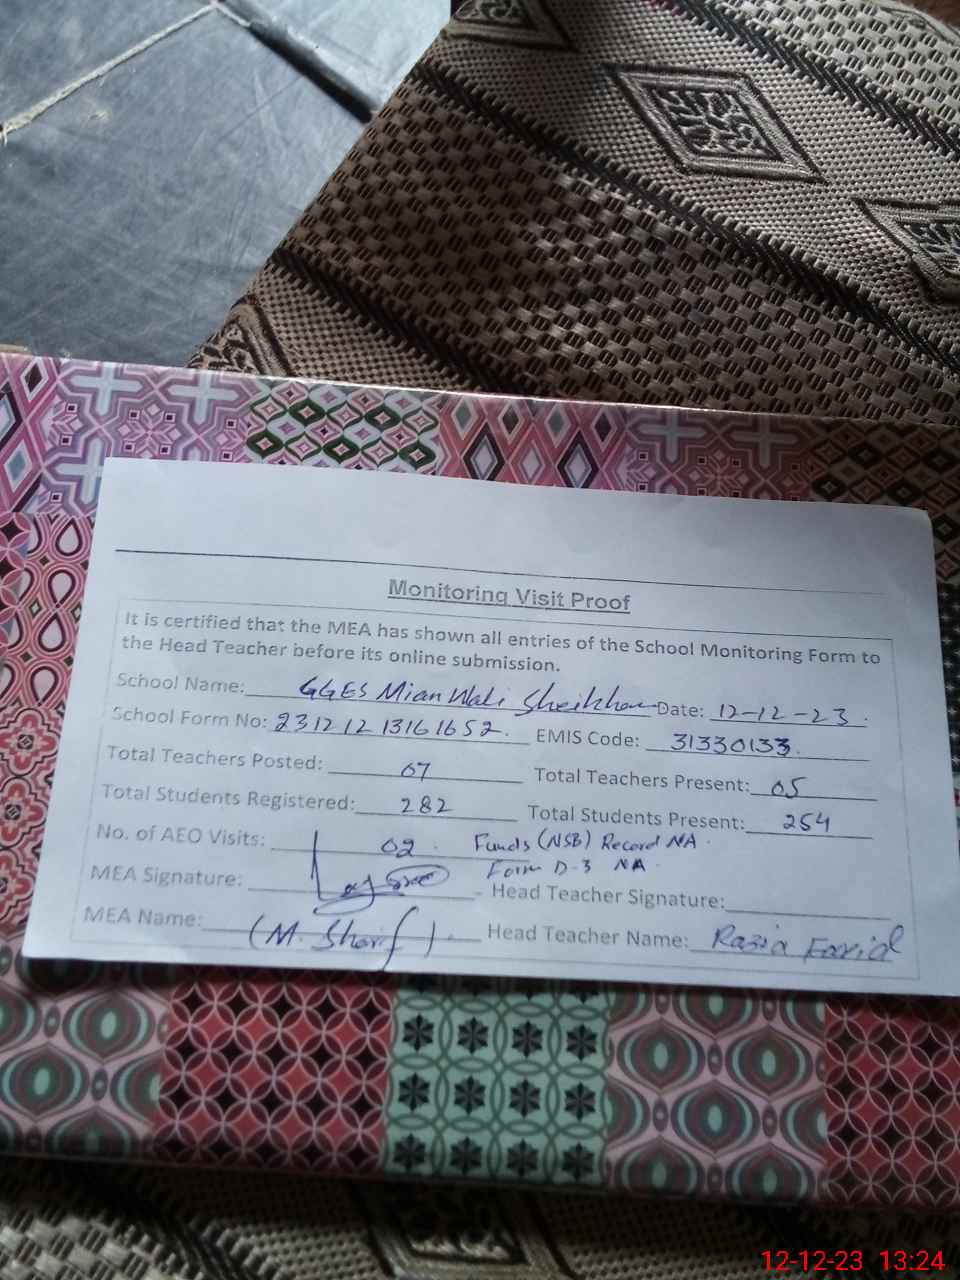 Monitoring Visit Proof
It is certified that the MEA has shown all entries of the School Monitoring Form to
the Head Teacher before its online submission.
School Name: GGES Mianwali Sheikhan Date: 12-12-23.
School Form No: 231212 13161652. EMIS Code: 31330133.
Total Teachers Posted: 07 Total Teachers Present: 05
Total Students Registered: 282 Total Students Present: 254
No. of AEO Visits: 02. Funds (NSB) Record NA.
Form D-3 NA.
MEA Signature: Head Teacher Signature:
MEA Name: (M. Sharif). Head Teacher Name: Razia Farid
12-12-23 13:24